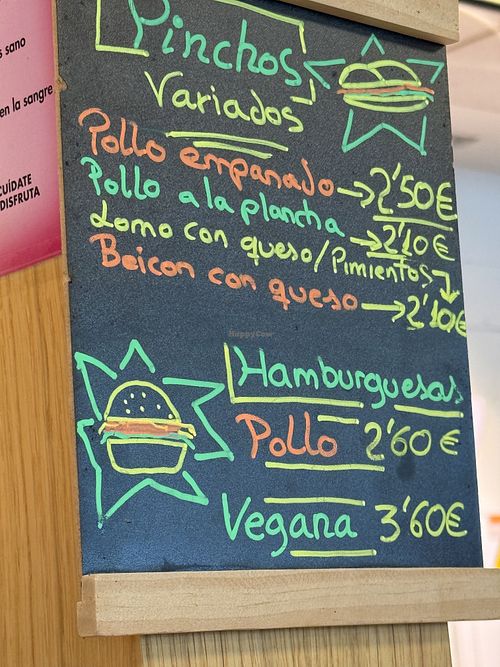 s sano
en la sangre
CUÍDATE
DISFRUTA
Pinchos
Variados
Pollo empanado → 2'50€
Pollo a la plancha → 2'10€
Lomo con queso/Pimientos
Beicon con queso → 2'10€
Hamburguesas
Pollo 2'60€
Vegana 3'60€
HappyCow